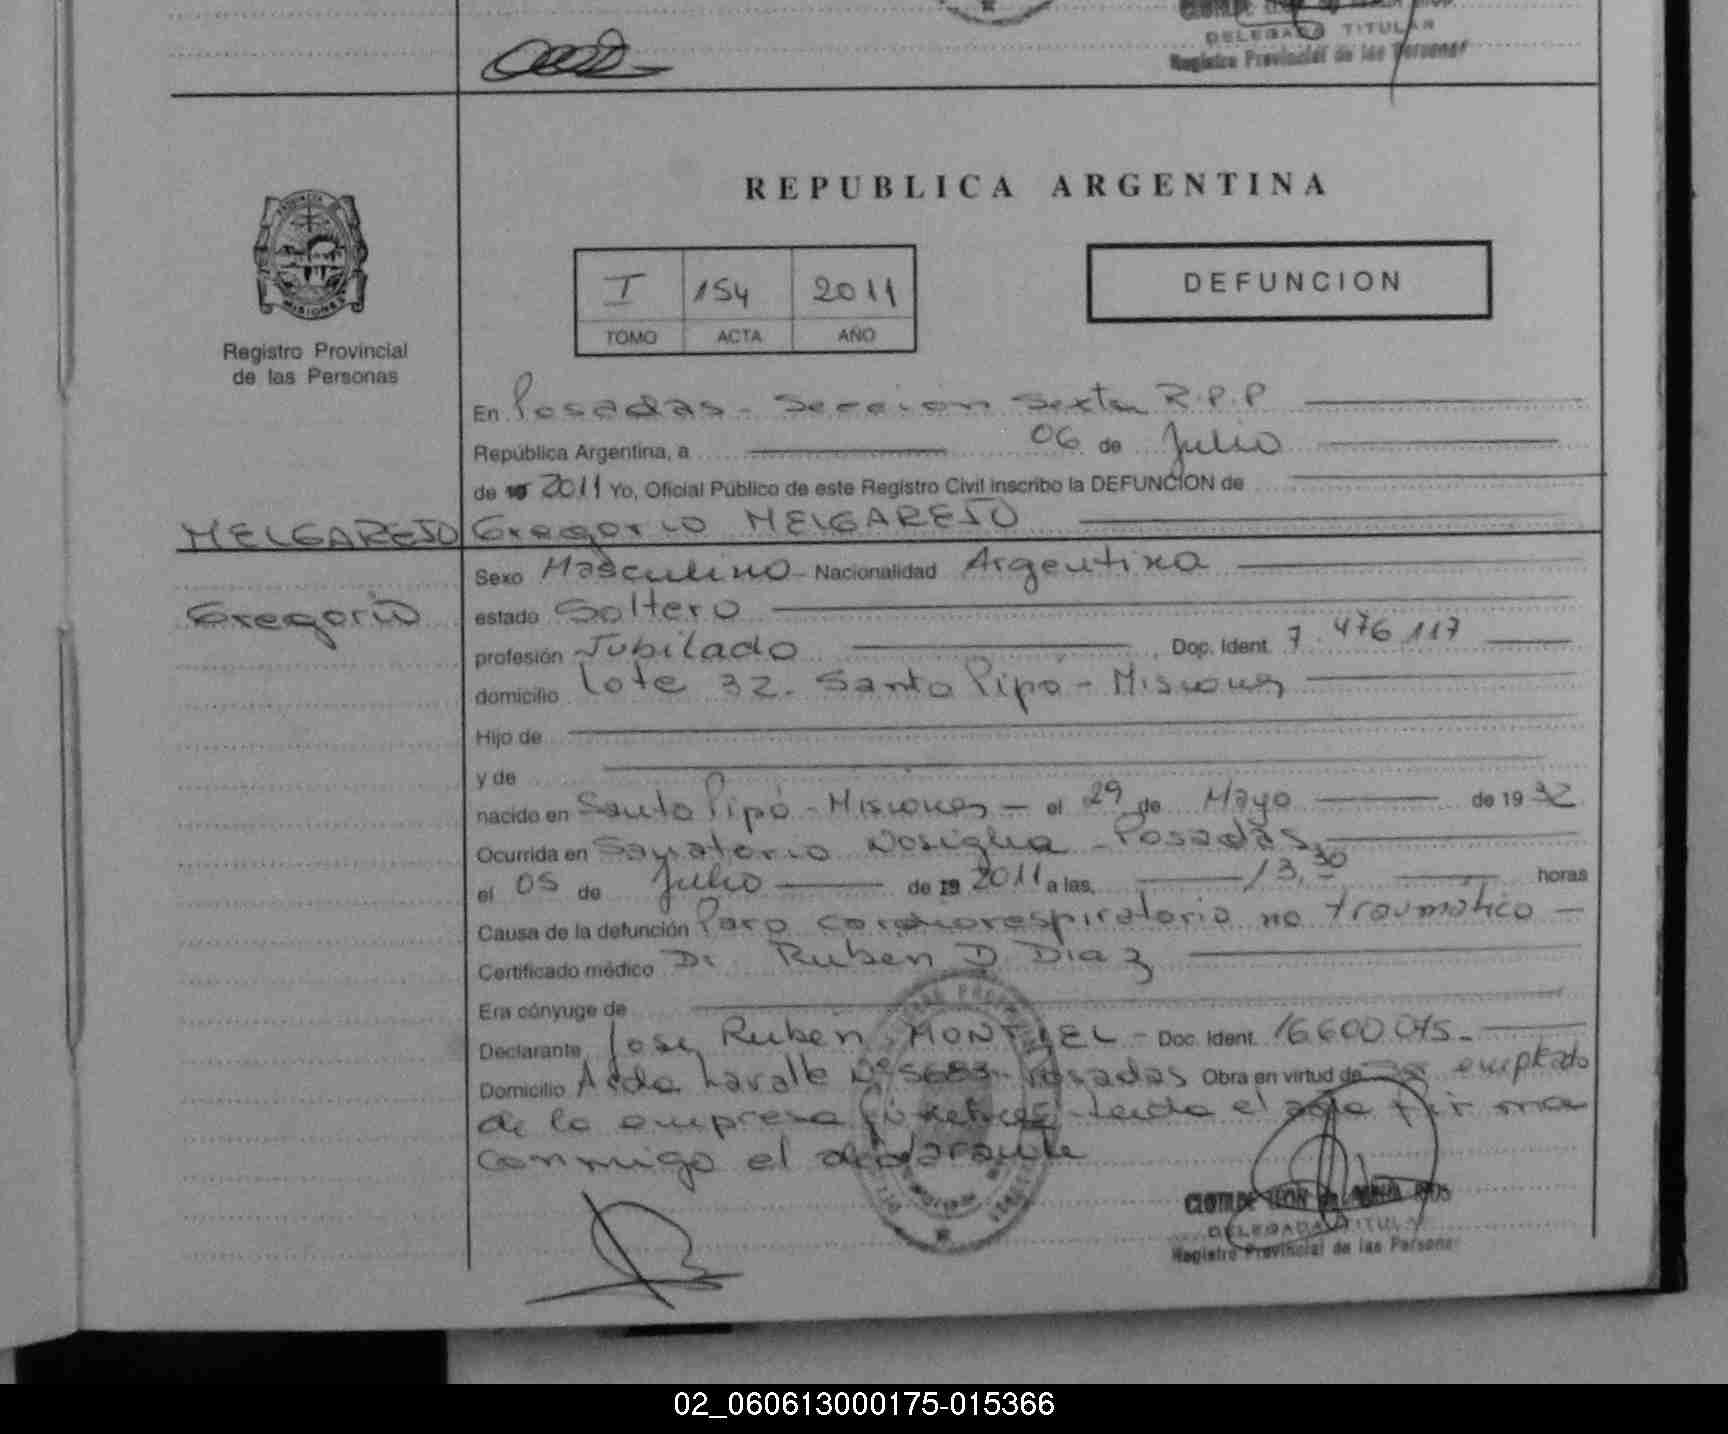 DELEGADA TITULAR
Registro Provincial de las Personas
REPUBLICA ARGENTINA
MISIONES
Registro Provincial
de las Personas
I 154 2011
TOMO ACTA AÑO
DEFUNCION
En Posadas - Sección Sexta R.P.P
República Argentina, a 06 de Julio
de 19 2011 Yo, Oficial Público de este Registro Civil inscribo la DEFUNCION de
MELGAREJO Gregorio MELGAREJO
Sexo Masculino - Nacionalidad Argentina
Gregorio
estado Soltero
profesión Jubilado Doc. Ident. 7.476.117
domicilio Lote 32. Santo Pipó - Misiones
Hijo de
y de
nacido en Santo Pipó - Misiones - el 29 de Mayo de 19 32
Ocurrida en Sanatorio Nosiglia - Posadas
el 05 de Julio de 19 2011 a las, 13,30 horas
Causa de la defunción Paro cardiorespiratorio no traumático
Certificado médico Dr Ruben D Diaz
Era cónyuge de
Declarante Jose Ruben MONTIEL - Doc. Ident. 16600015
Domicilio Avda Lavalle Nº 5683 - Posadas Obra en virtud de ser empleado
de la empresa fúnebre leida el acta firma
conmigo el declarante
DELEGADA TITULAR
Registro Provincial de las Personas
02_060613000175-015366